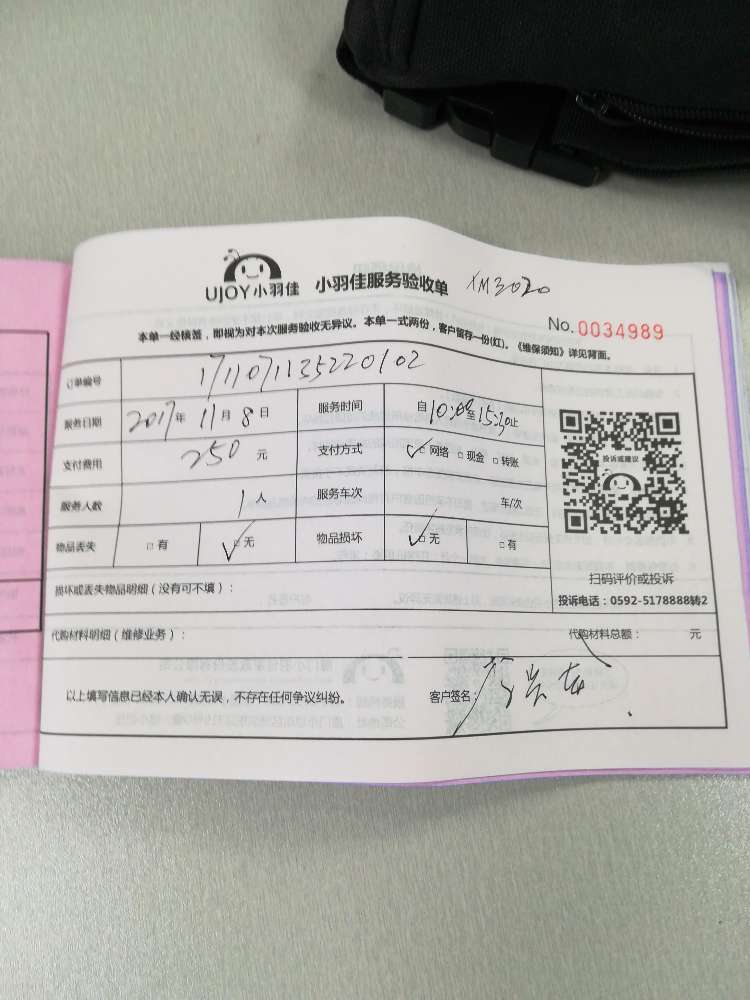 UJOY小羽佳 小羽佳服务验收单 XM3020
No.0034989
本单一经横签，即视为对本次服务验收无异议。本单一式两份，客户留存一份(红)。《维保须知》详见背面。
订单编号 17110711352201 02
服务日期 2017年11月8日 服务时间 自10:00至15:30止
支付费用 250元 支付方式 ✓□网络 □现金 □转账
服务人数 1人 服务车次 车/次
物品丢失 □有 ✓□无 物品损坏 ✓□无 □有
投诉或建议
扫码评价或投诉
投诉电话：0592-5178888转2
损坏或丢失物品明细（没有可不填）：
代购材料明细（维修业务）： 代购材料总额： 元
以上填写信息已经本人确认无误，不存在任何争议纠纷。 客户签名：